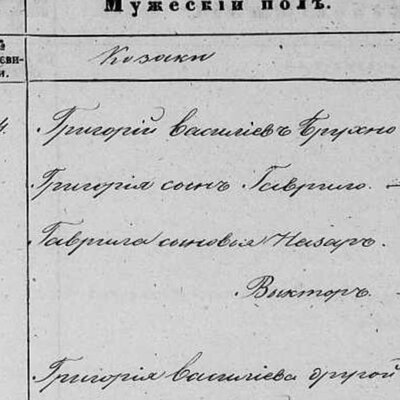 Мужескій полъ.
№
еви-
и.
Козаки
4.
Григорій Василіевъ Брухно
Григорія сынъ Гаврило. —
Гаврила сыновья Назаръ.
Викторъ. —
Григорія Василіева другой